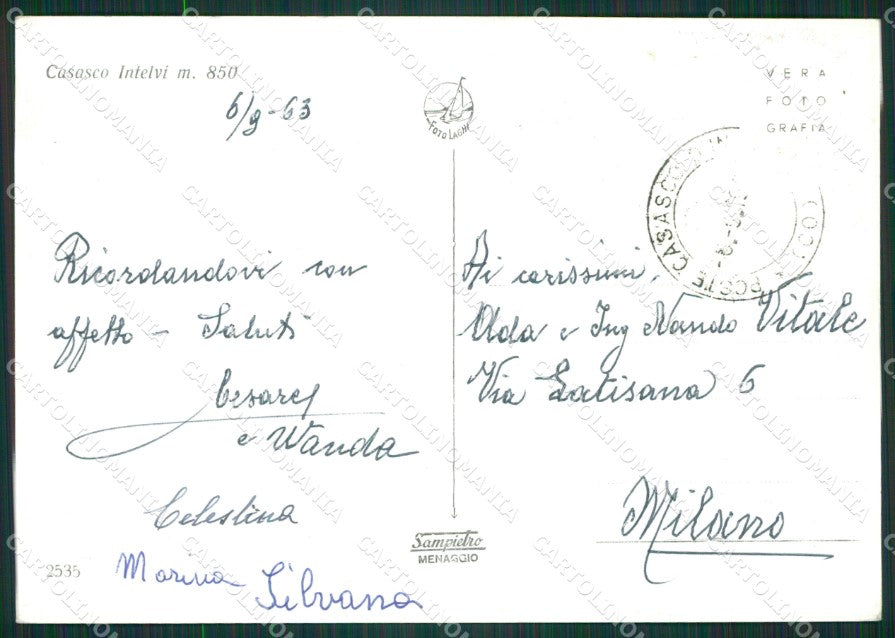 Casasco Intelvi m. 850
6/9-63
FOTO LAGHI
VERA
FOTO
GRAFIA
POSTE CASASCO
Ricordandovi con
affetto - Saluti
Cesare
e Wanda
Celestina
Marina
Silvana
Ai carissimi,
Alda e Ing Nando Vitale
Via Latisana 6
Milano
Sampietro
MENAGGIO
2535
CARTOLINOMANIA